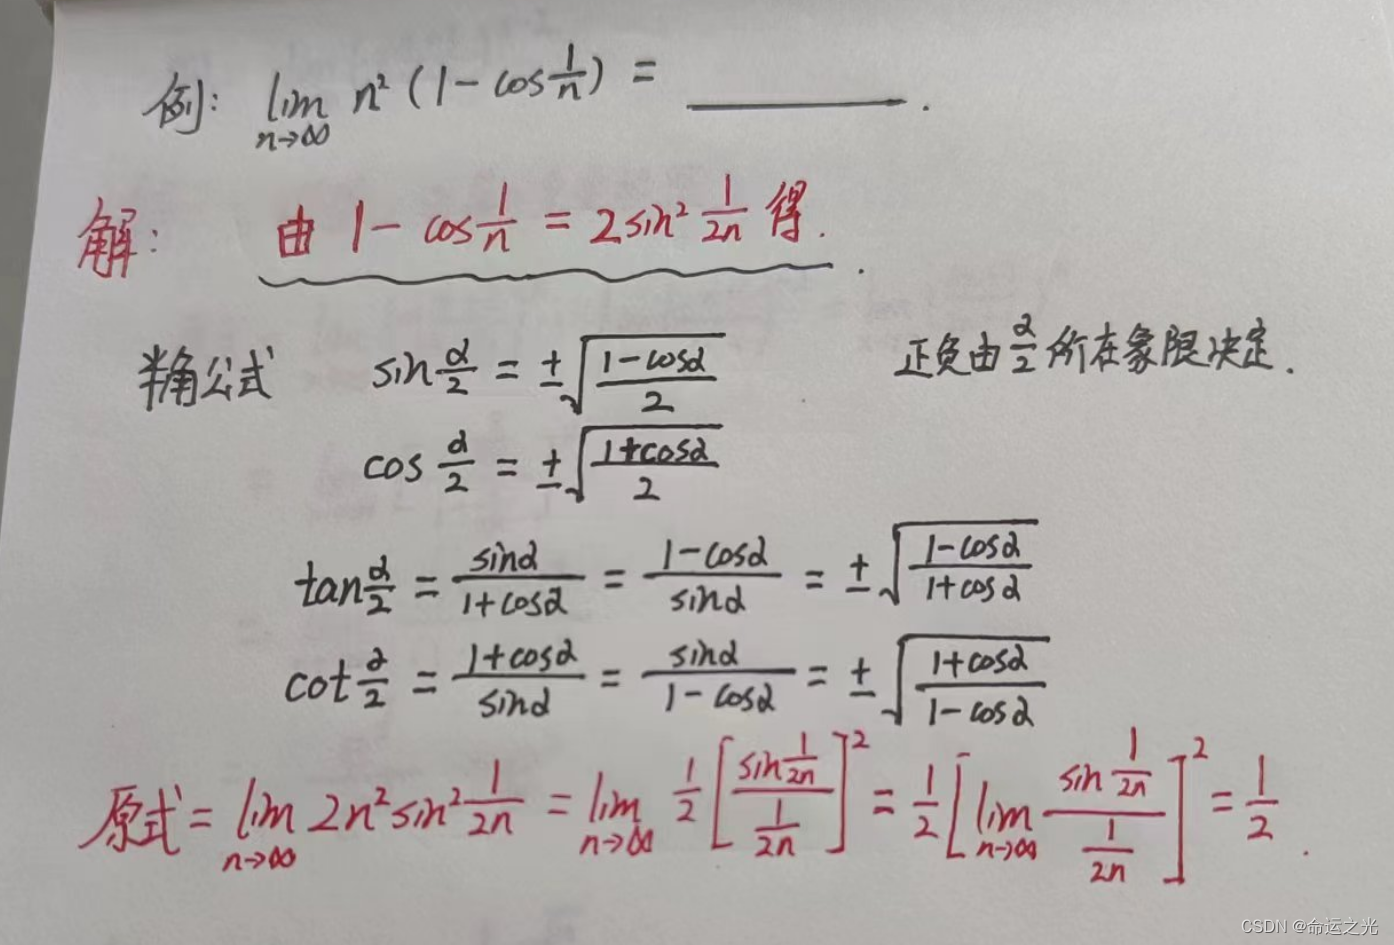 例: lim_{n→∞} n²(1-cos\frac{1}{n}) = ________.
解: 由 1-cos\frac{1}{n} = 2sin²\frac{1}{2n} 得.
半角公式 sin\frac{α}{2} = ±\sqrt{\frac{1-cosα}{2}} 正负由\frac{α}{2}所在象限决定.
cos\frac{α}{2} = ±\sqrt{\frac{1+cosα}{2}}
tan\frac{α}{2} = \frac{sinα}{1+cosα} = \frac{1-cosα}{sinα} = ±\sqrt{\frac{1-cosα}{1+cosα}}
cot\frac{α}{2} = \frac{1+cosα}{sinα} = \frac{sinα}{1-cosα} = ±\sqrt{\frac{1+cosα}{1-cosα}}
原式 = lim_{n→∞} 2n²sin²\frac{1}{2n} = lim_{n→∞} \frac{1}{2}[\frac{sin\frac{1}{2n}}{\frac{1}{2n}}]² = \frac{1}{2}[lim_{n→∞} \frac{sin\frac{1}{2n}}{\frac{1}{2n}}]² = \frac{1}{2}.
CSDN @命运之光